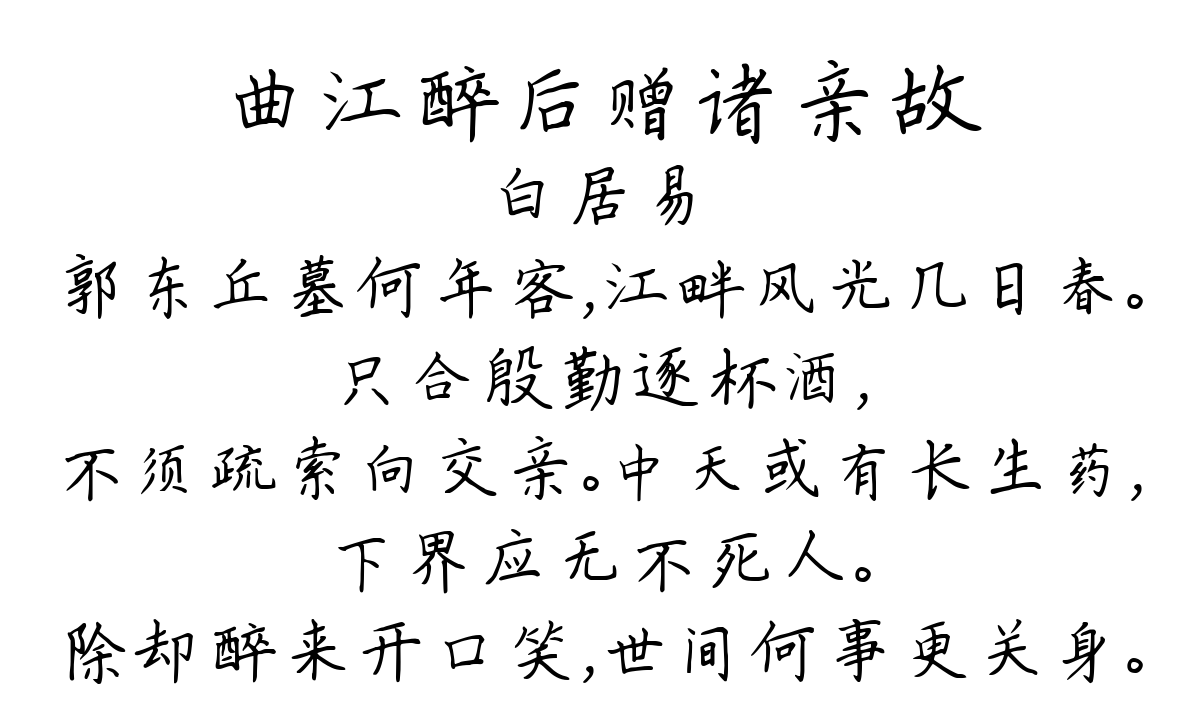 曲江醉后赠诸亲故
白居易
郭东丘墓何年客,江畔风光几日春。
只合殷勤逐杯酒,
不须疏索向交亲。中天或有长生药,
下界应无不死人。
除却醉来开口笑,世间何事更关身。